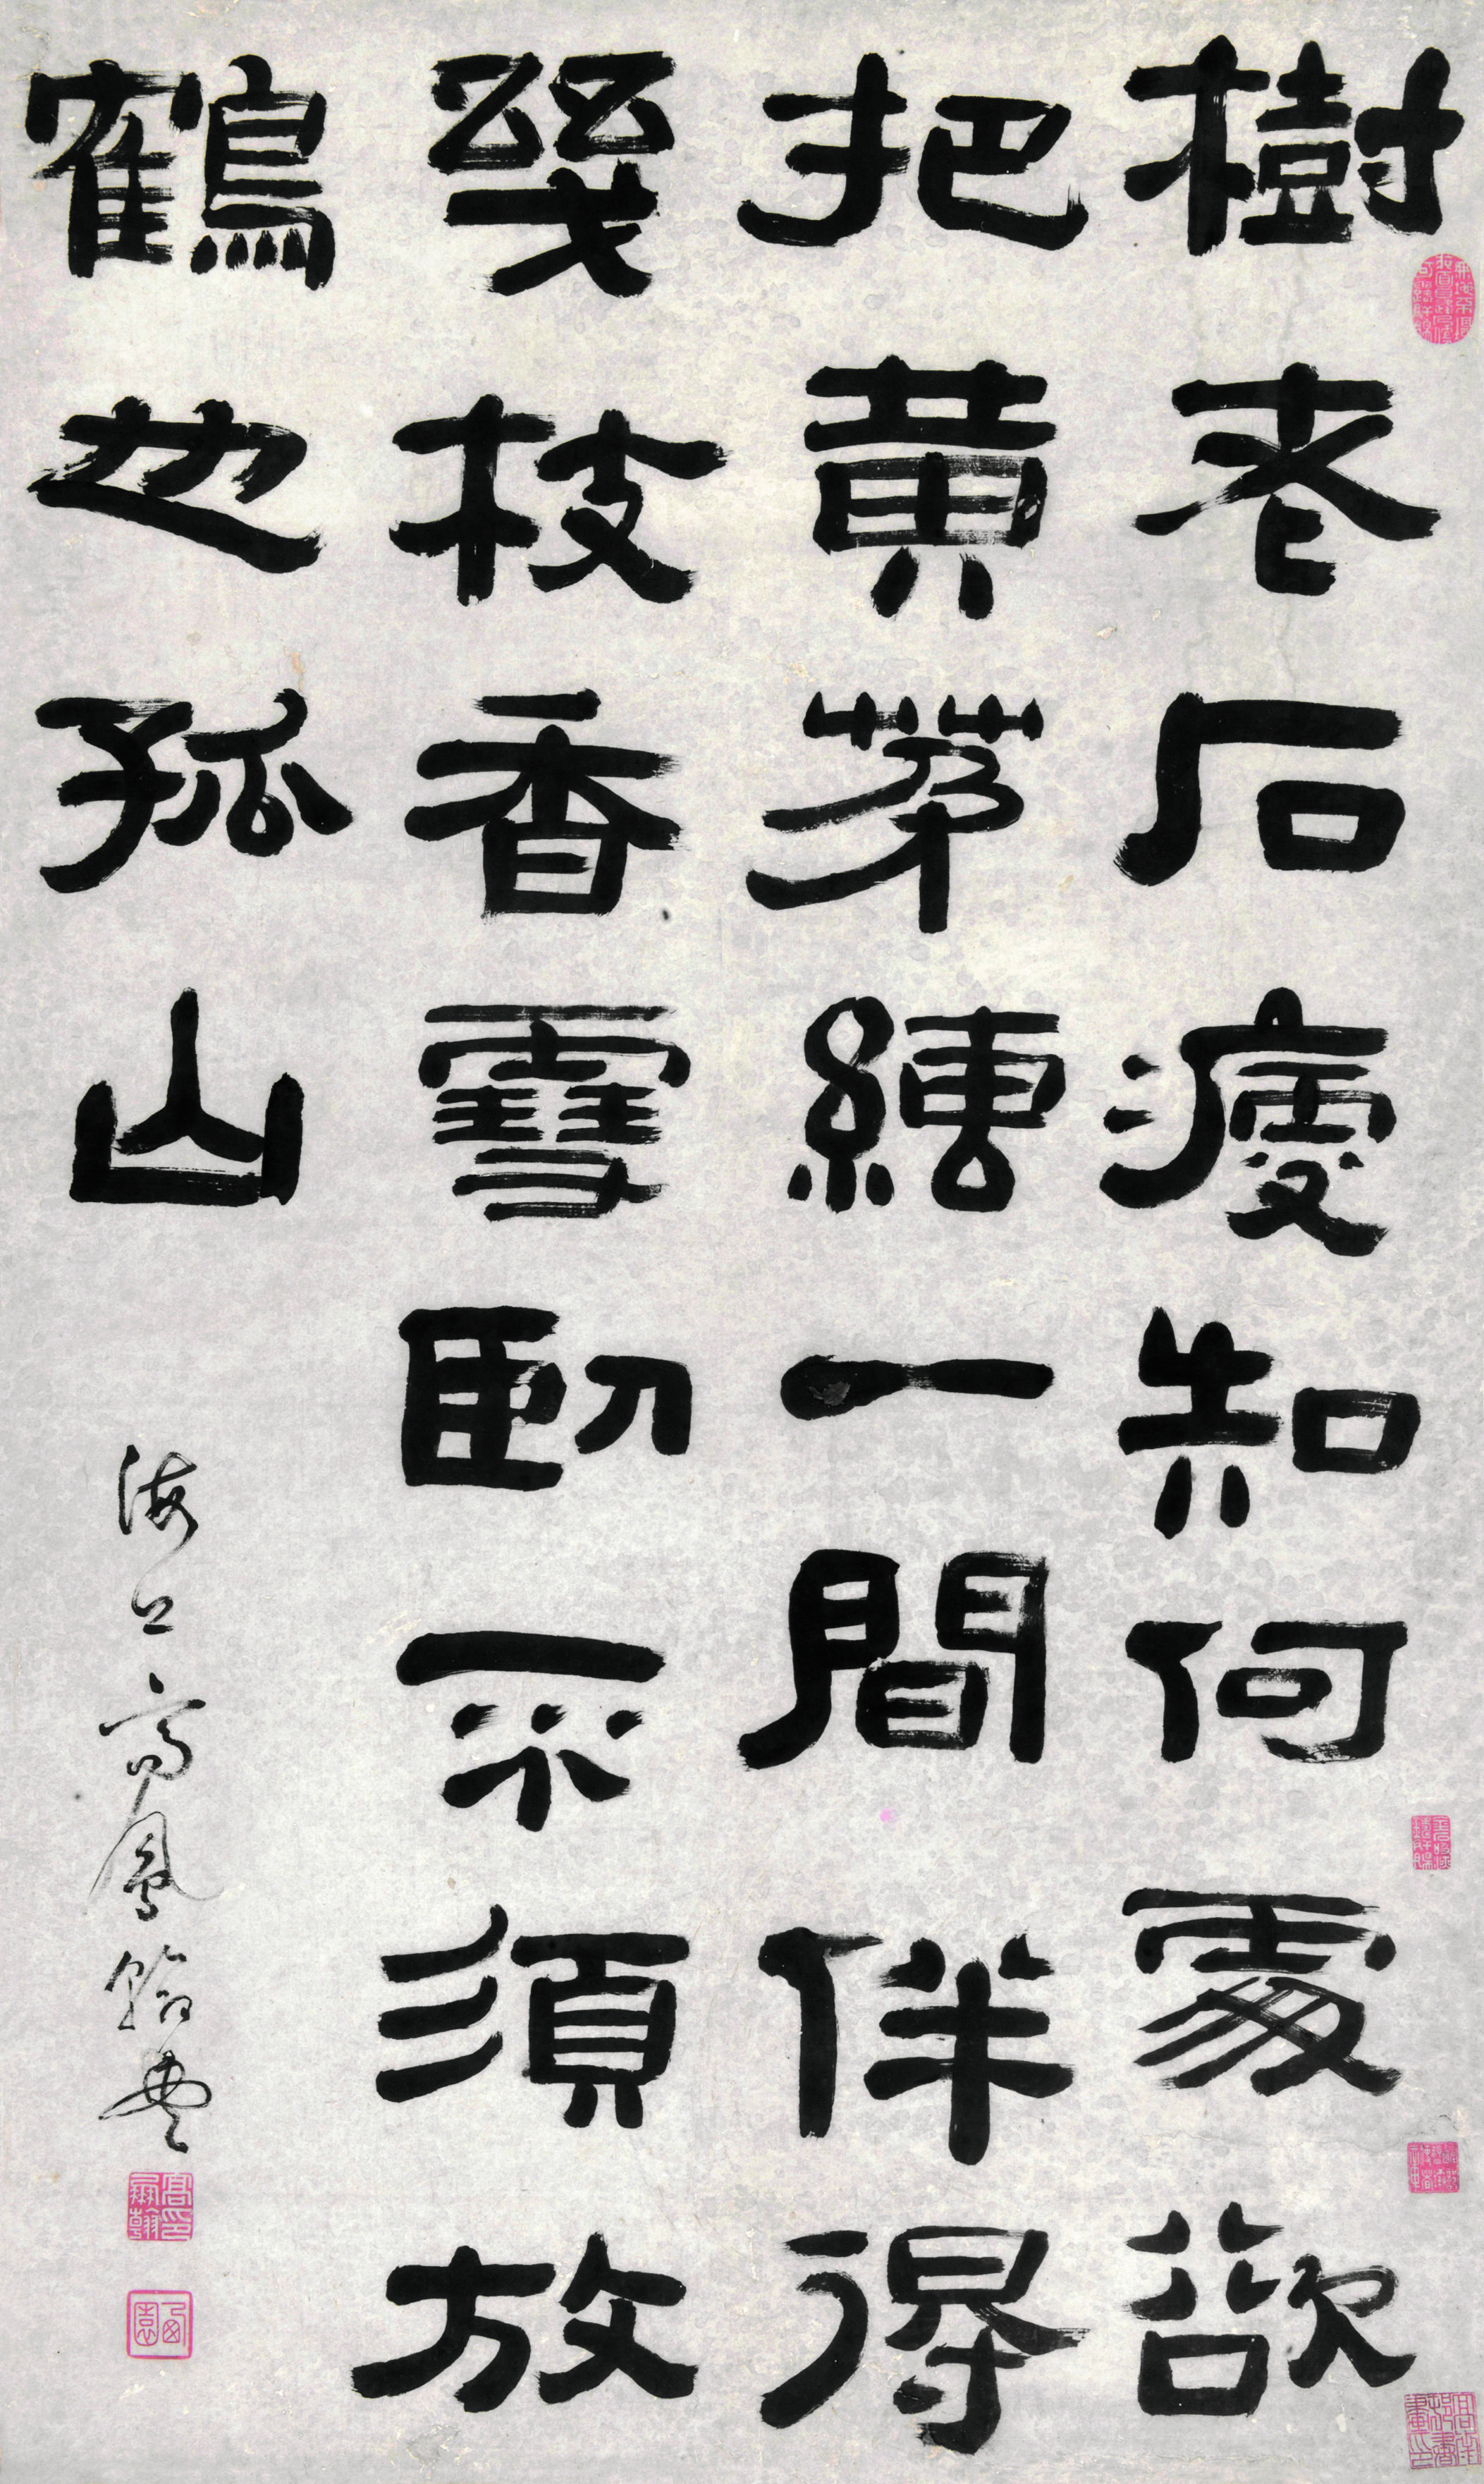 樹老石瘦知何處欲
把黄茅縛一間伴得
幾枝香雪卧不須放
鶴也孤山
海上高鳳翰